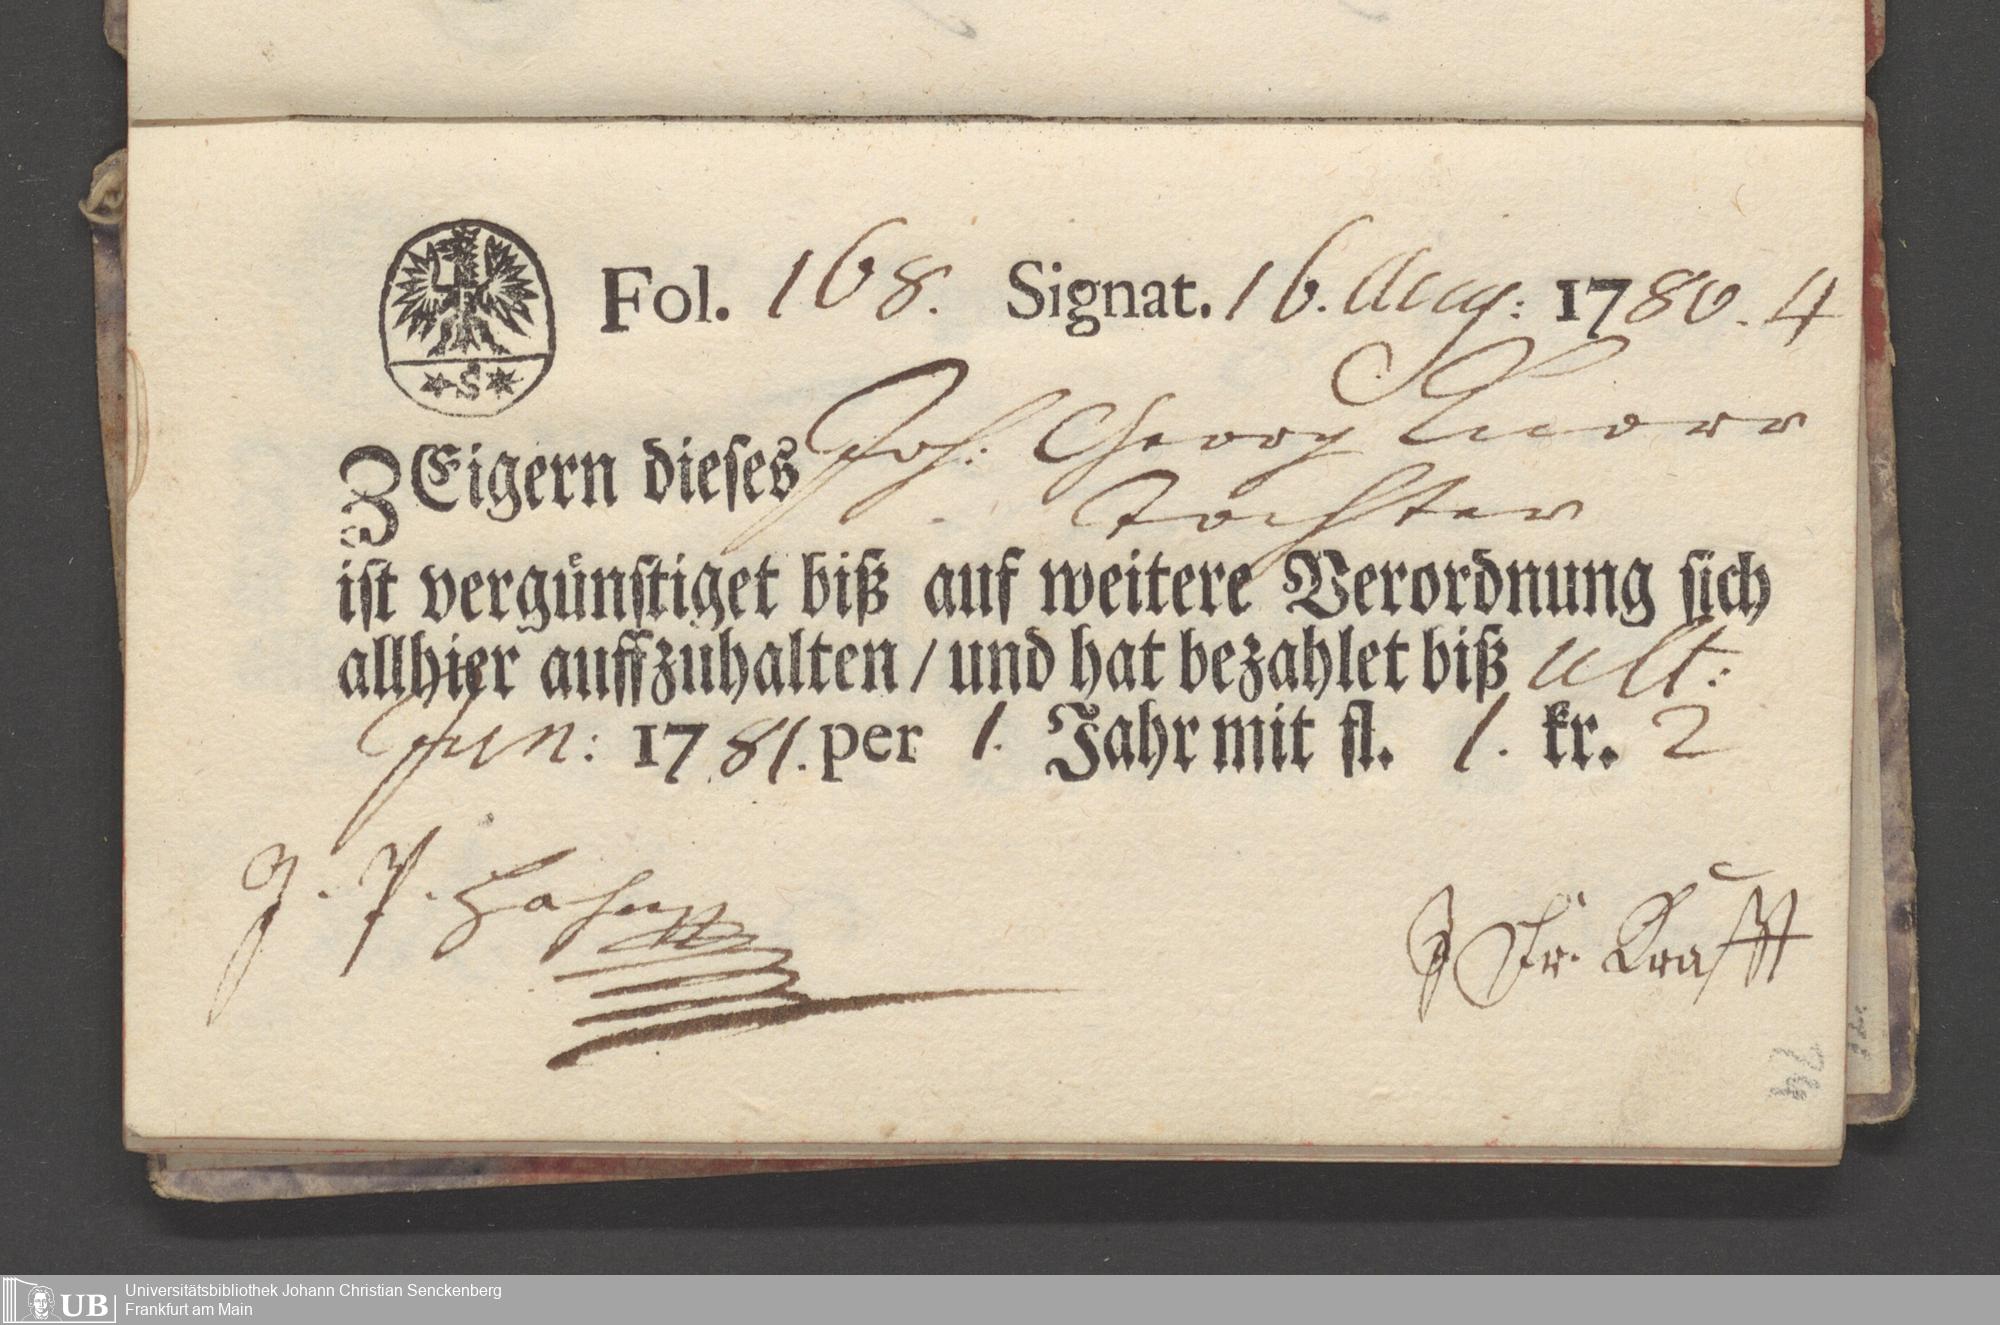 Fol. 168. Signat. 16. Aug: 1780. 4
* S *
ZEigern dieses Joh: Georg Knorr
Tochter
ist vergünstiget biß auf weitere Verordnung sich
allhier auffzuhalten / und hat bezahlet biß ult:
Jun: 1781. per 1. Jahr mit fl. 1. kr. 2
J. P. Hahn
J Fr. Krafft
UB
Universitätsbibliothek Johann Christian Senckenberg
Frankfurt am Main